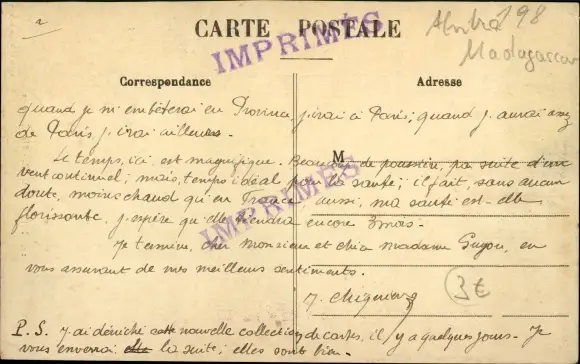 2
CARTE POSTALE
IMPRIMÉS
Afrika 98
Madagascar
Correspondance
Adresse
quand je m'embêterai en Province, j'irai à Paris; quand j'aurai assez
de Paris, j'irai ailleurs.
M
Le temps, ici, est magnifique. Beaucoup de poussière, par suite d'un
vent continuel; mais, temps idéal pour la santé; il fait, sans aucun
doute, moins chaud qu'en France, aussi, ma santé est-elle
florissante, j'espère qu'elle tiendra encore 3 mois.
IMPRIMÉS
Je termine, cher Monsieur et chère Madame Guyou, en
vous assurant de mes meilleurs sentiments.
3€
P.S. J'ai déniché cette nouvelle collection de cartes, il y a quelques jours. Je
vous enverrai elle la suite; elles sont bien.